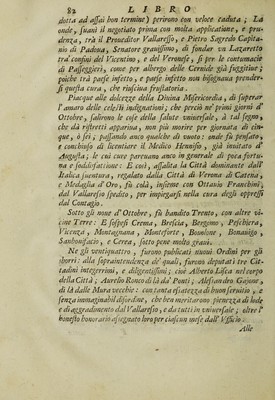 82 LIBRO
dotta ad assai bon termine) perirono con veloce caduta; La
onde, suani il negotiato prima con molta applicatione, e pru-
denza, trà il Proueditor Vallaresso, e Pietro Sagredo Capita-
nio di Padoua, Senatore grauissimo, di fondar vn Lazaretto
tra' confini del Vicentino, e del Veronese, sì per le contumacie
di Passeggieri, come per albergo delle Cernide già suggestiue;
poiche trà paese infetto, e paese infetto non bisognaua prender-
si questa cura, che riusciua frustatoria.
Piacque alle dolcezze della Diuina Misericordia, di superar
l'amaro delle celesti indignationi; che perciò ne' primi giorni d'
Ottobre, salirono le cose della salute vniuersale, à tal segno,
che dà ristretti appariua, non più morire per giornata di cin-
que, ò sei, passando anco qualche dì vuoto: onde fu pensato,
e conchiuso di licentiare il Medico Hennisso, già inuitato d'
Augusta; le cui cure pareuano anco in generale di poca fortu-
na e sodisfattione: E così, vscita la Città dominante dall'
Italica suentura, regalato dalla Città di Verona di Catena,
e Medaglia d'Oro, fù colà, insieme con Ottauio Franchini,
dal Vallaresso spedito, per impiegarsi nella cura degli oppressi
dal Contagio.
Sotto gli noue d'Ottobre, fù bandito Trento, con altre vi-
cine Terre: E sospesi Crema, Brescia, Bergomo, Peschiera,
Vicenza, Montagnana, Monteforte, Bouolone, Bonauigo,
Sanbonifacio, e Cerea, sotto pene molto graui.
Ne gli ventiquattro, furono publicati nuoui Ordini per gli
sborri: alla sopraintendenza de' quali, furono deputati tre Cit-
tadini integerrimi, e diligentissimi; cioè Alberto Lisca nel corpo
della Città; Aurelio Ronco di là da' Ponti; Alessandro Gajone,
di là dalle Mura vecchie: con tanta esatezza di buon seruitio, e
senza immaginabil disordine, che ben meritarono pienezza di lode
e di aggradomento dal Vallaresso, e da tutti in vniuersale; oltre l'
honesto honorario assegnato loro per ciascun mese dall' Vfficio.
Alle